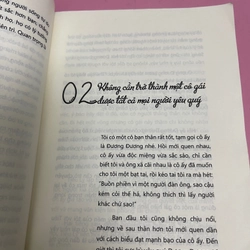 02
Không cần trở thành một cô gái
được tất cả mọi người yêu quý
Tôi có một cô bạn thân rất tốt, tạm gọi cô ấy
là Đương Đương nhé. Hồi mới quen nhau,
cô ấy vừa độc miệng vừa sắc sảo, chỉ cần
biết tôi và ông xã cãi nhau là cô ấy đã muốn
cho tôi một bạt tai, rồi kéo tai tôi ra mà hét:
"Buồn phiền vì một người đàn ông, sao cậu kém
cỏi thế hả, không thích thì lấy người
khác chứ sao!"
Ban đầu tôi cũng không chịu nổi,
nhưng về sau thân hơn tôi mới quen dần
với cách biểu đạt mạnh bạo của cô ấy. Đến